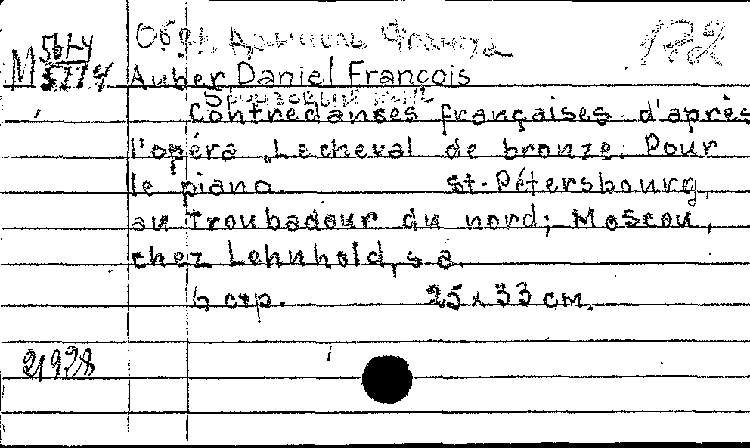 Обер, Даниель Франсуа 172
M
Auber Daniel François
Contredanses françaises d'après
l'opéra „Le cheval de bronze. Pour
le piano. St-Pétersbourg,
au Troubadour du nord; Moscou,
chez Lehnhold, s.a.
6 стр. 25 x 33 см.
21928